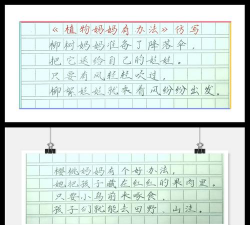 《植物妈妈有办法》仿写
柳树妈妈准备了降落伞，
把它送给自己的娃娃。
只要有风轻轻吹过，
柳絮娃娃就乘着风纷纷出发。
樱桃妈妈有个好办法，
她把孩子藏在红红的果肉里。
只要小鸟前来啄食，
孩子们就能去田野、山洼。